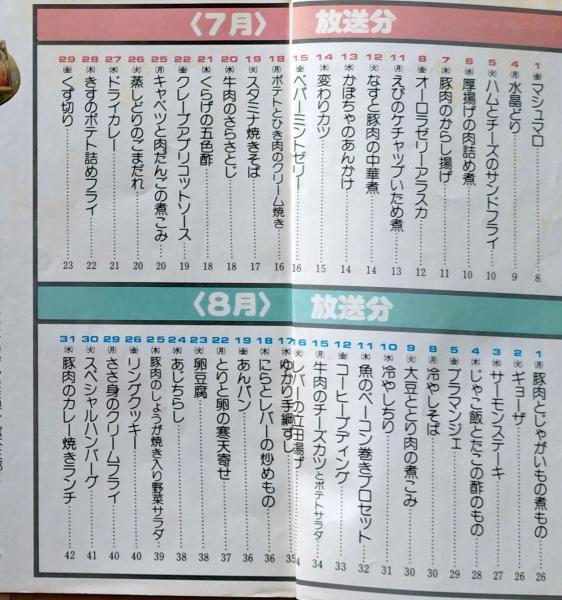 〈7月〉 放送分
1 ㊎ マシュマロ 8
4 ㊊ 水晶どり 9
5 ㊋ ハムとチーズのサンドフライ 10
6 ㊌ 厚揚げの肉詰め煮 10
7 ㊍ 豚肉のからし揚げ 11
8 ㊎ オーロラゼリーアラスカ 12
11 ㊊ えびのケチャップいため煮 13
12 ㊋ なすと豚肉の中華煮 14
13 ㊌ かぼちゃのあんかけ 14
14 ㊍ 変わりカツ 15
15 ㊎ ペパーミントゼリー 16
18 ㊊ ポテトとひき肉のクリーム焼き 16
19 ㊋ スタミナ焼きそば 17
20 ㊌ 牛肉のさらさとじ 18
21 ㊍ くらげの五色酢 18
22 ㊎ クレープアプリコットソース 19
25 ㊊ キャベツと肉だんごの煮こみ 20
26 ㊋ 蒸しどりのごまだれ 20
27 ㊌ ドライカレー 21
28 ㊍ きすのポテト詰めフライ 22
29 ㊎ くず切り 23
〈8月〉 放送分
1 ㊊ 豚肉とじゃがいもの煮もの 26
2 ㊋ ギョーザ 26
3 ㊌ サーモンステーキ 27
4 ㊍ じゃこ飯とたこの酢のもの 28
5 ㊎ ブラマンジェ 29
8 ㊊ 冷やしそば 30
9 ㊋ 大豆ととり肉の煮こみ 30
10 ㊌ 冷やしちり 30
11 ㊍ 魚のベーコン巻きブロセット 31
12 ㊎ コーヒープディング 32
15 ㊊ 牛肉のチーズカツとポテトサラダ 33
16 ㊋ レバーの立田揚げ 34
17 ㊌ ゆかり手綱ずし 35
18 ㊍ にらとレバーの炒めもの 36
19 ㊎ あんパン 36
22 ㊊ とりと卵の寒天寄せ 37
23 ㊋ 卵豆腐 38
24 ㊌ あじちらし 38
25 ㊍ 豚肉のしょうが焼き入り野菜サラダ 39
26 ㊎ リングクッキー 40
29 ㊊ ささ身のクリームフライ 40
30 ㊋ スペシャルハンバーグ 41
31 ㊌ 豚肉のカレー焼きランチ 42